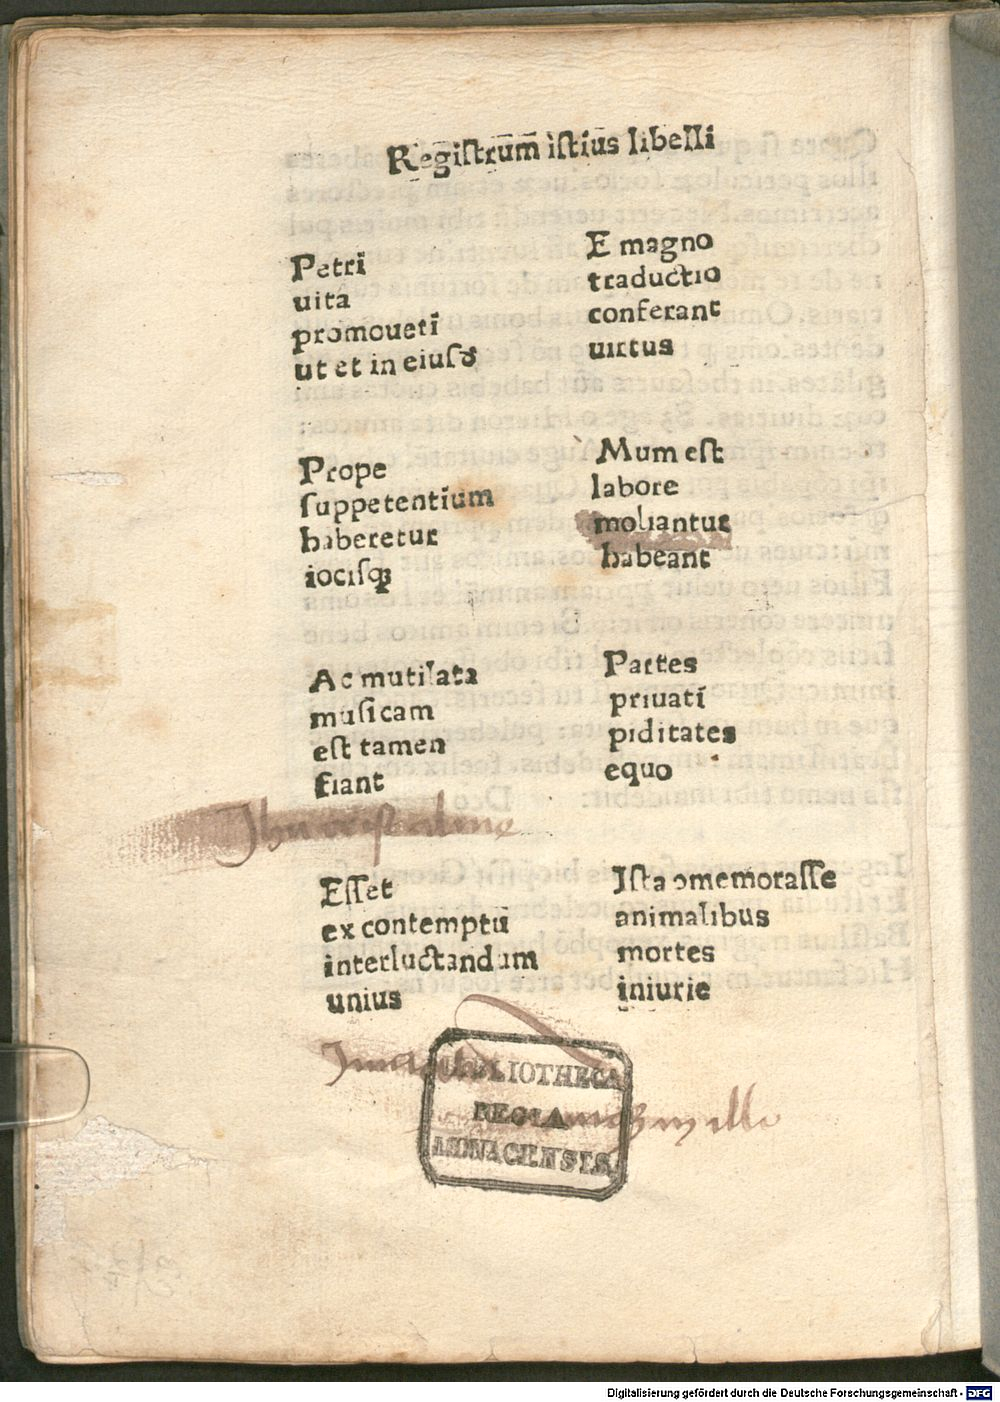 Registrum̄ istius libelli
Petri
uita
promoueti
ut et in eiusd
Prope
suppetentium
haberetur
iocisqꝫ
Ac mutilata
musicam
est tamen
fiant
Esset
ex contemptu
interluctandum
unius
E magno
traductio
conferant
uirtus
Mum est
labore
moliantur
habeant
Partes
priuati
piditates
equo
Ista ɔmemorasse
animalibus
mortes
iniurie
BIBLIOTHECA
REGIA
MONACENSIS
Digitalisierung gefördert durch die Deutsche Forschungsgemeinschaft - DFG